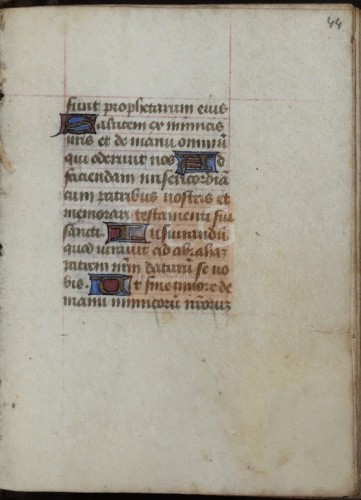 44
sunt prophetarum eius
Salutem ex inimicis
nris et de manu omniũ
qui oderunt nos Ad
faciendam misericordiã
cum patribus nostris et
memorari testamenti sui
sancti Iusiurandũ
quod iuravit ad abraha-
patrem nr̃m daturũ se no
bis. Ut sine timore de
manu inimicorũ nr̃oruz